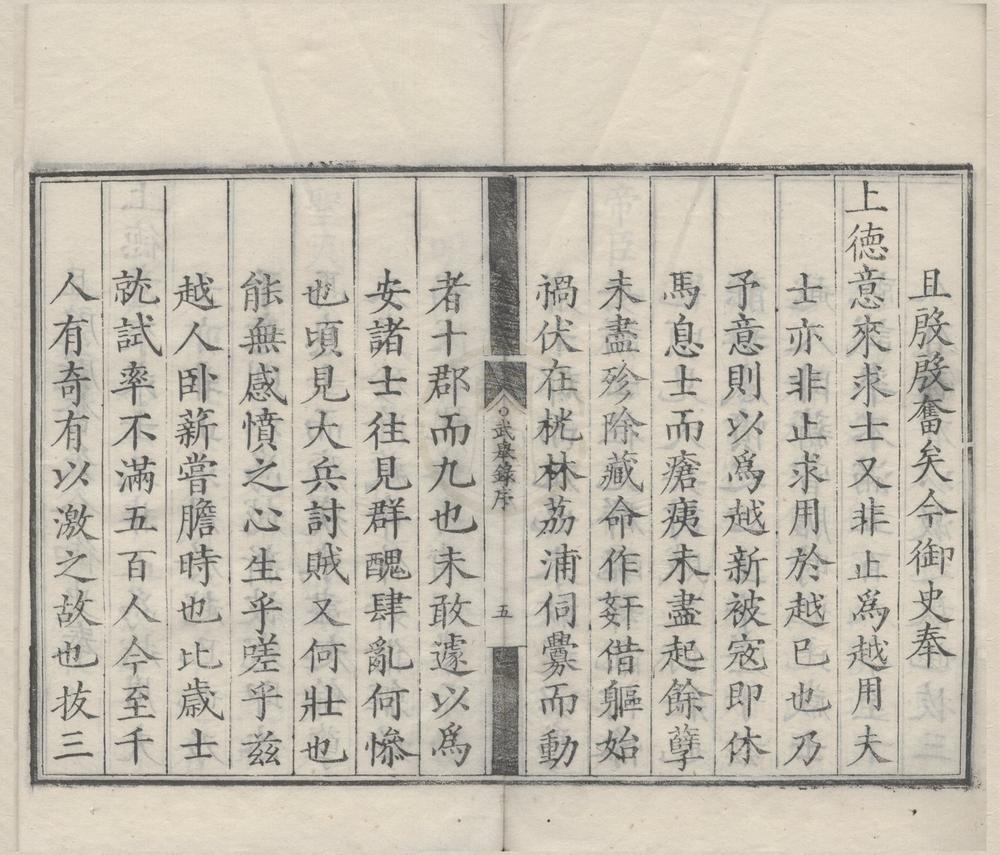 且殷殷奮矣今御史奉
上德意來求士又非止爲越用夫
士亦非止求用於越巳也乃
予意則以爲越新被寇即休
馬息士而瘡痍未盡起餘孽
未盡殄除藏命作奸借軀始
禍伏在桄林荔浦伺釁而動
武舉錄序
五
者十郡而九也未敢遽以爲
安諸士徃見群醜肆亂何慘
也頃見大兵討賊又何壯也
能無感憤之心生乎嗟乎兹
越人卧薪嘗膽時也比歲士
就試率不滿五百人今至千
人有奇有以激之故也抜三